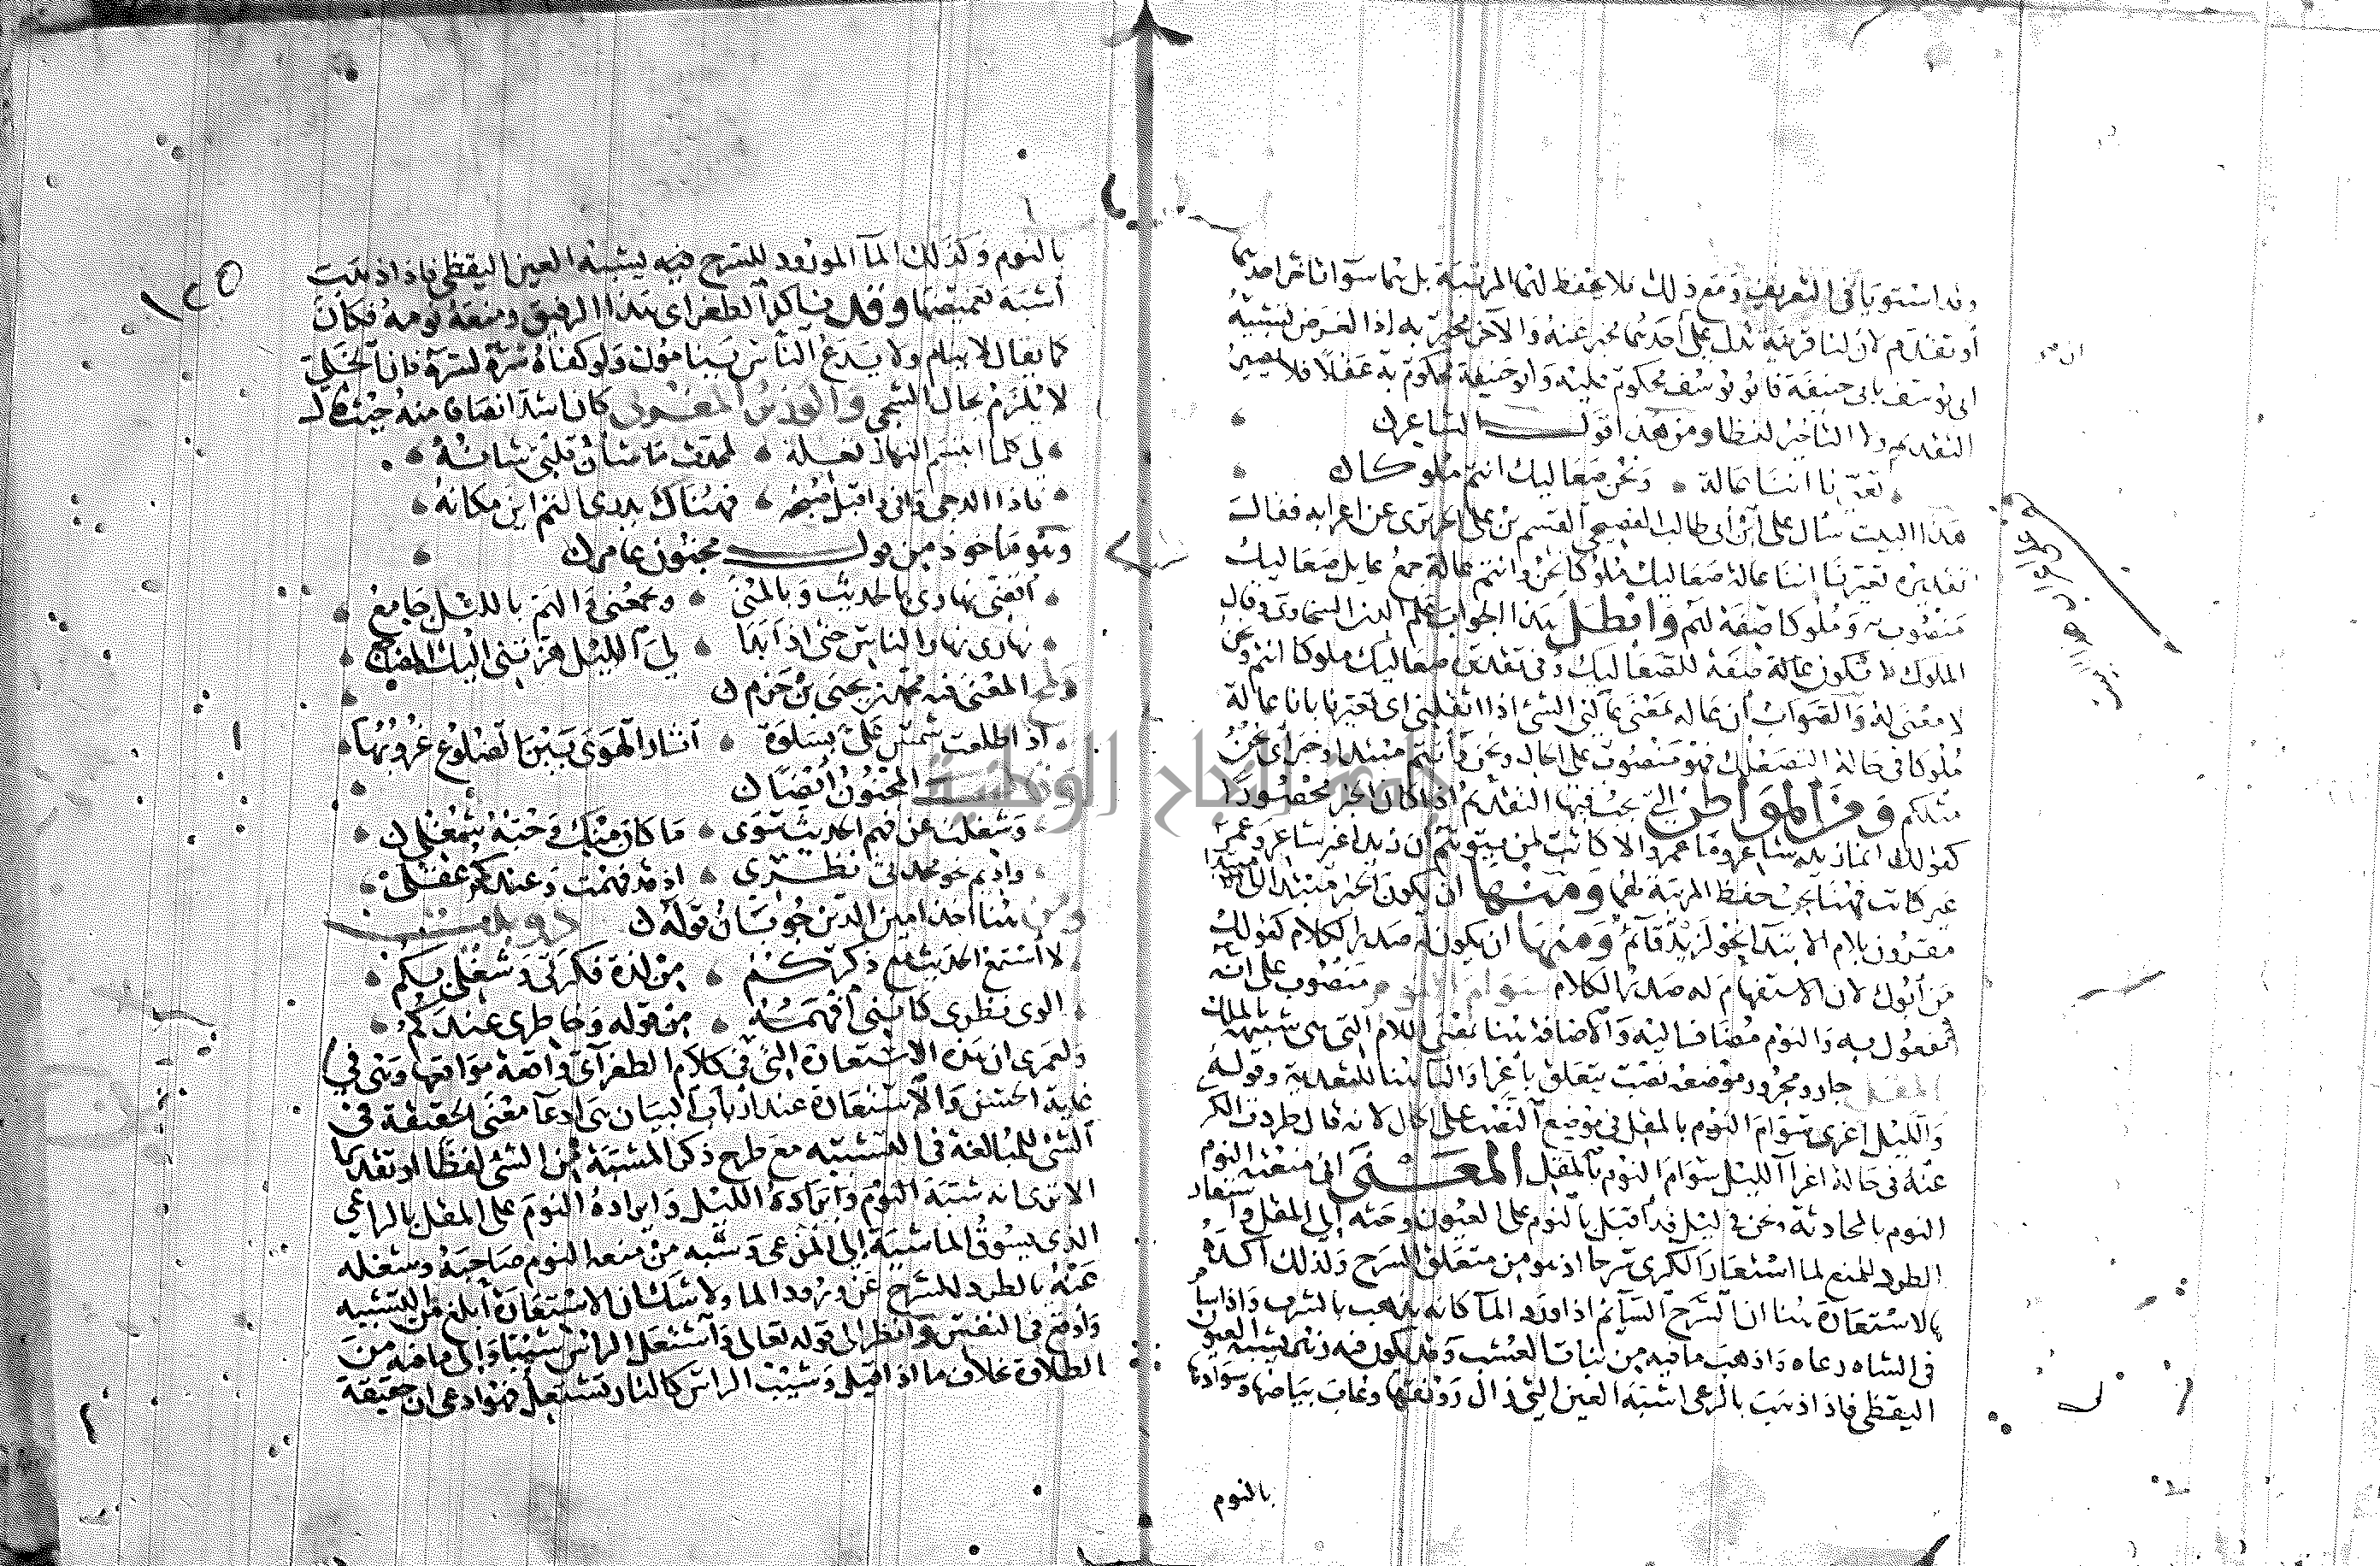 وقد استويا في التعريف ومع ذلك فلا يحفظ لهما المرتبة بل هما سوآ تأخر احدهما
او تقدم لان لنا قرينة تدل على أحدهما مخبر عنه والآخر مخبر به اذ الغرض تشبيه
ابي يوسف بابي حنيفة فابو يوسف محكوم عليه وابو حنيفة محكوم به عقلا فلا يضير
التقديم ولا التأخير لفظا ومن هذا قول الشاعر
تعيرنا اننا عالة ونحن صعاليك انتم ملوكا
هذا البيت سأل على ابن أبي طالب الفصيحي القسم بن على الحريري عن اعرابه فقال
تقديره تعيرنا اننا عالة صعاليك ملوكا نحن وانتم عالة جمع عايل صعاليك
منصوب به وملوكا صفة لهم وافضل هذا الجواب علم الدين السخاوي وقال
الملوك لا تكون عالة صفة للصعاليك وفي تقديره صعاليك ملوكا انتم ونحن
لا معنى له والصواب أن عاله بمعنى عالني الشئ اذا اثقلني اي تعيرنا بانا عالة
ملوكا في حالة التصعلك فهو منصوب على الحال ونحن وأنتم مبتدا وخبر أي نحن
مثلكم ومن المواطن التي يجب فيها التقديم اذا كان الخبر محصورا
كقولك انما زيد شاعر وما عمرو الا كاتب لمن يتوهم ان زيدا غير شاعر وعمرا
غير كاتب فهنا يجب حفظ المرتبة لهما ومنها ان يكون الخبر مبتدا
مقرون بلام الابتدا نحو لزيد قائم ومنها ان يكون له صدر الكلام كقولك
من أبوك لان الاستفهام له صدر الكلام سوام النوم منصوب على انه
مفعول به والنوم مضاف اليه والاضافة هنا بمعنى اللام التي هي شبهة بالملك
بالمقل جار ومجرور موضعه نصب يتعلق بأغرا والبا هنا للتعدية وقوله
والليل اغرى سوام النوم بالمقل في موضع النصب على الحال لانه قال طردت الكرى
عنه في حالة اغرا الليل سوام النوم بالمقل المعنى اني منعته النوم
النوم بالمحادثة ونحن في ليل قد أقبل بالنوم على العيون وحثه إلى المقل واستعار
الطرد للمنع لما استعار الكرى سرحا اذ هو من متعلق السرح ولذلك اكده
بالاستعارة هنا ان السرح السايم اذا ورد المآ كانه يذهب بالشرب واذا ساب
في الشاه رعاه واذهب ما فيه من نبات العشب وقد يكون فيه زهر يشبه العيون
اليقظى فاذا ذهب بالرعى اشبه العين التي زال رونقها وغاب بياضها وسوادها
بالنوم
١٢٥
بالنوم وكذلك المآ المورود للسرح فيه يشبه العين اليقظى فاذا ذهب
أشبه تغميضها وقد شاكل الطغراى هذا الرفيق ومنعه نومه فكان
كما يقال لا ينام ولا يدع الناس ينامون ولو كفاه شره لسره فان الخلي
لا يلزم بحال الشجي والوزير المغربي كان اشد انصافا منه حيث قال
لي كلما ابتسم النهار تعلة لمحدث ما شأن قلبي شانه
فاذا الدجى وافى واقبل جنحه فهناك يدري الهم اين مكانه
وهو مأخوذ من قول مجنون عامر
أقضى نهاري بالحديث وبالمنى ويجمعني والهم بالليل جامع
نهاري نهار الناس حتى اذا بدا لي الليل هزتني اليك المضاجع
ولم المعنى فيه محمد بن يحيى بن حزم
اذا طلعت شمس على بسلوة أثار الهوى بين الضلوع غروبها
المجنون أيضا
وشغلت عن فهم الحديث سوى ما كان منك وحبه شغلى
واديم نحو محدثي نظري ان قد فهمت وعندكم عقلي
ومن هنا اخذ امين الدين جوبان قوله
لا أسمع الحديث مع ذكركم من لذة فكرتي وشغلي بكم
الوى نظرى كانني أفهمه من قوله وخاطري عندكم
ولعمرى ان هذه الاستعارة التي في كلام الطغرآى واقعة مواقعها وهي في
غاية الحسن والاستعارة عند ارباب البيان هى ادعآ معنى الحقيقة في
الشئ للمبالغة في التشبيه مع طرح ذكر المشبه من الشئ لفظا او تقديرا
الا ترى انه شبه النوم وايراده الليل وايراده النوم على المقل بالراعي
الذى يسوق الماشية إلى المرعى وشبه من منعه النوم صاحبه وشغله
عنه بالطرد للسرح عن ورود الما ولا شك ان الاستعارة أبلغ من التشبيه
وأوقع في النفس وانظر الى قوله تعالى واشتعل الراس شيبا وإلى ما فيه من
الطلاوة بخلاف ما اذا قيل وشيب الراس كالنار تشتعل فهو ادعى ان حقيقة